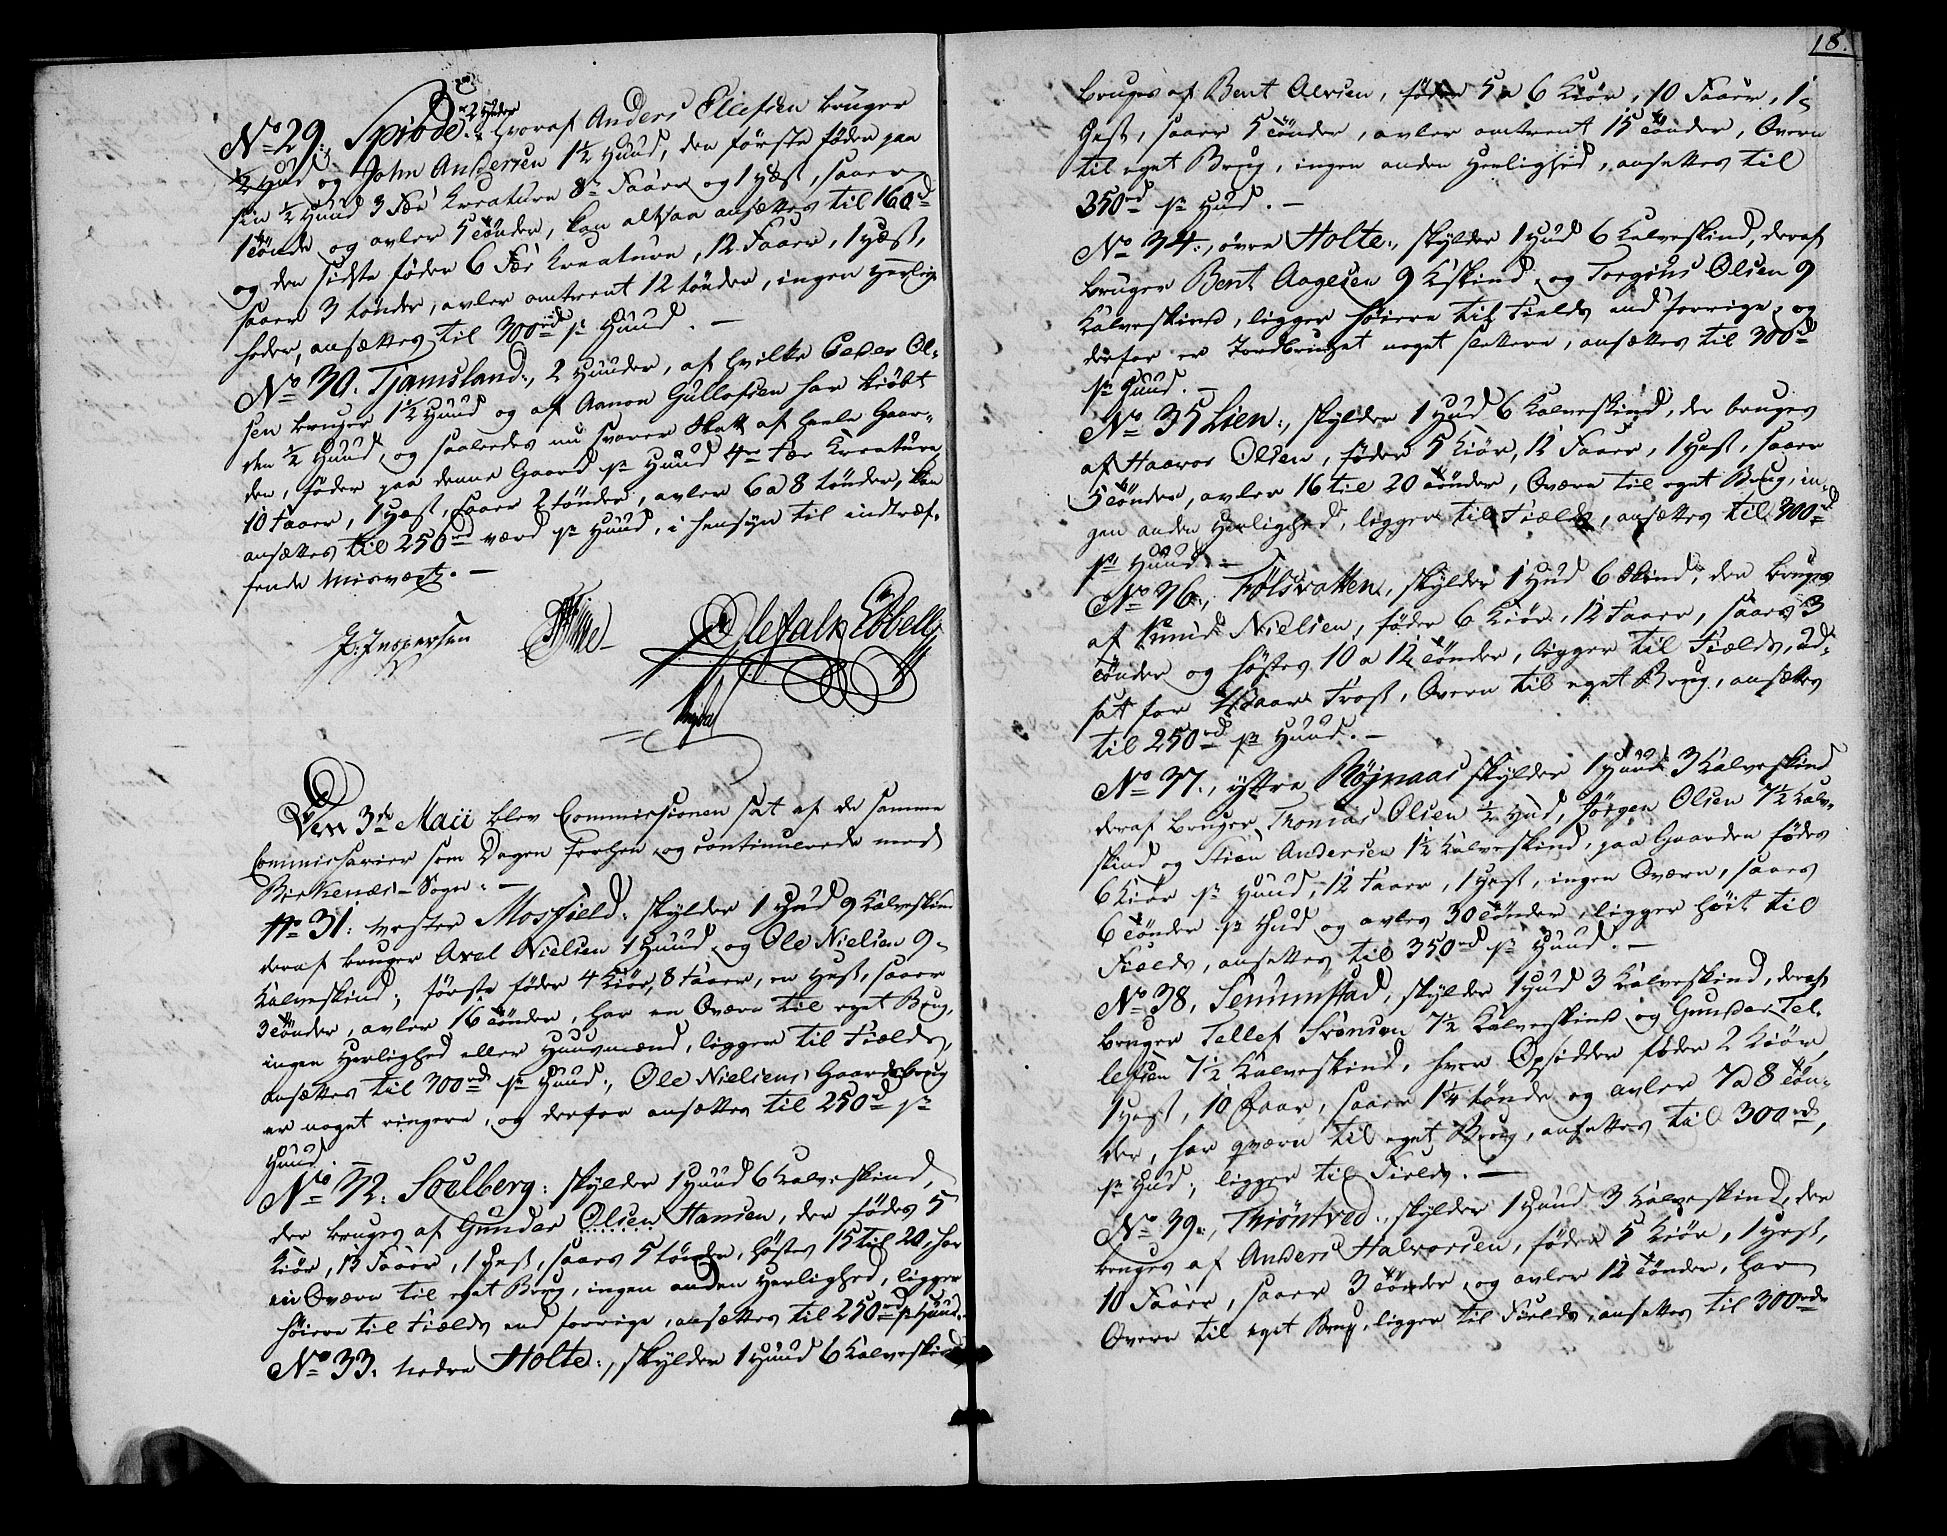 No 29. Spiode. 2 Huder hvoraf Anders Ellefsen bruger
½ Hud og John Andersen 1½ Huud, den første føder paa
sin ½ Huud 3 Fæ Kreature 8te Faar og 1 Hæst, saaer
1 Tønde og avler 5 Tønder, kan altsaa ansættes til 160 rd
og den sidste føder 6 Fæ Kreature, 12 Faar, 1 Hæst,
saaer 3 tønder, avler omtrent 12 tønder, ingen Herlig-
heder, ansættes til 300 rd pr Huud. —
No 30. Tjamsland., 2 Huuder, af hvilke Peder Ol-
sen bruger 1½ Huud og af Aanon Gullofsen har kiøbt
den ½ Huud, og saaledes nu svarer Skatt af heele Gaar-
den, føder paa denne Gaard pr Huud 4re Fæ Kreature,
10 Faar, 1 Hest, saaer 2 tønder, avler 6 a 8 tønder, kan
ansættes til 250 rd værd pr Huud, i hensyn til indtræf-
fende Misvæxt. —
P. Jespersen Ole Falk Ebbell
Den 3de Maii blev Commissionen sat af de samme
Commissairer som Dagen forhen og continuerede med
Birkenæs-Sogn. —
No 31. vester Mosfield. skylder 1 Hud 9 Kalveskind
deraf bruger Axel Nielsen 1 Huud og Ole Nielsen 9
Kalveskind, første føder 4 Kiør, 8 Faar, en Hest, saaer
3 Tønder, avler 16 Tønder, har en Qværn til eget Brug,
ingen Herlighed eller Huusmænd, ligger til Fields,
ansættes til 300 rd pr Huud, Ole Nielsens Gaardebrug
er noget ringere, og derfor ansættes til 250 rd pr
Huud. —
No 32. Soelberg. skylder 1 Huud 6 Kalveskind,
der bruges af Gunder Olsen Hansen, der fødes 5
Kiør, 15 Faar, 1 Hest, saaes 5 tønder, høstes 15 til 20, har
en Qværn til eget Brug, ingen anden Herlighed, ligger
høiere til Fields end forrige, ansættes til 250 rd pr Huud.
No 33. nedre Holte., skylder 1 Huud 6 Kalveskind
18.
bruges af Bent Alvsen, føder 5 a 6 Kiør, 10 Faar, 1
Hest, saaer 5 Tønder, avler omtrent 15 Tønder, Qvern
til eget Brug, ingen anden Herlighed, ansættes til
350 rd pr Hud. —
No 34., øvre Holte., skylder 1 Hud 6 Kalveskind, deraf
bruger Bent Aagesen 9 Kskind og Torgius Olsen 9
Kalveskind, ligger høiere til Fields end forrige, og
derfor er Jordbruget noget slettere, ansættes til 300 rd
pr Huud. —
No 35 Lien., skylder 1 Hud 6 Kalveskind, der bruges
af Haavor Olsen, føder 5 Kiør, 12 Faar, 1 Hest, saaer
5 Tønder, avler 16 til 20 Tønder, Qværn til eget Brug, in-
gen anden Herlighed, ligger til Fields, ansættes til 300 rd
pr Huud. —
No 36., Følsvatten, skylder 1 Hud 6 Skind, der bruges
af Knud Nielsen, føder 6 Kiør, 12 Faar, saaes 3
Tønder og høstes 10 a 12 Tønder, ligger til Fields, ud-
sat for Frost, Qvern til eget Brug, ansættes
til 250 rd pr Huud. —
No 37., yttre Røjnaas skylder 1 Huud 3 Kalveskind
deraf bruger Thomas Olsen ½ Hud, Jørgen Olsen 7½ Kalv-
skind og Stian Andersen 1½ Kalveskind, paa Gaarden fødes
6 Kiør pr Huud, 12 Faar, 1 Hest, ingen Qværn, saaes
6 Tønder pr Hud og avles 30 Tønder, ligger høit til
Fields, ansættes til 350 rd pr Huud. —
No 38, Senumstad, skylder 1 Hud 3 Kalveskind, deraf
bruger Tellef Svensen 7½ Kalveskind og Gunder Tel-
lefsen 7½ Kalveskind, hver Opsidder føder 2 Kiør,
1 Hest, 10 Faar, saaer 1¼ tønde og avler 7 a 8 Tøn-
der, har qværn til eget Brug, ansættes til 300 rd,
pr Hud, ligger til Fields. —
No 39., Thiøntved., skylder 1 Huud 3 Kalveskind, der
bruges af Anders Halvorsen, føder 5 Kiør, 1 Hest,
10 Faar, saaer 3 Tønder og avler 12 Tønder, har
Qvern til eget Brug, ligger til Fields, ansættes til 300 rd